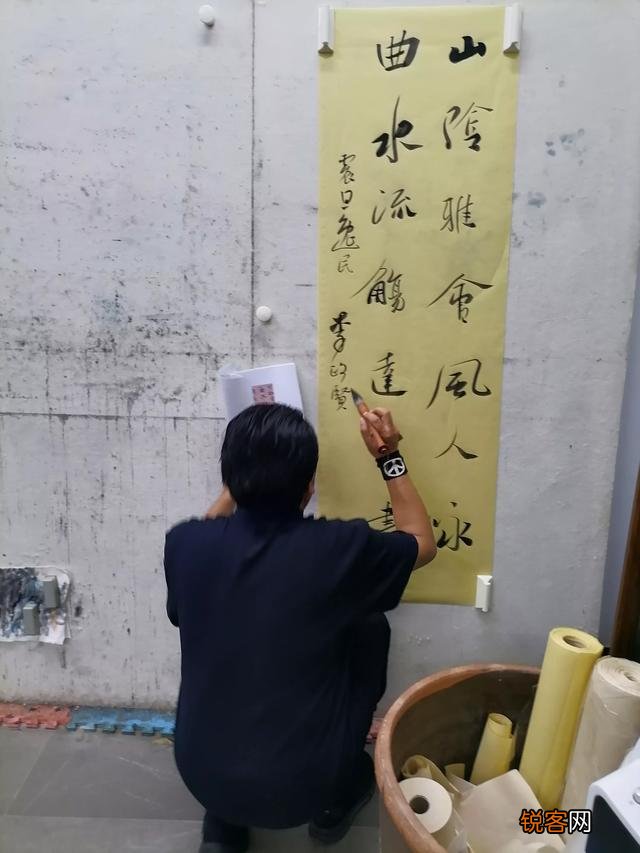 山陰雅会風人詠
曲水流觴達
震旦逸民
李政賢
锐客网